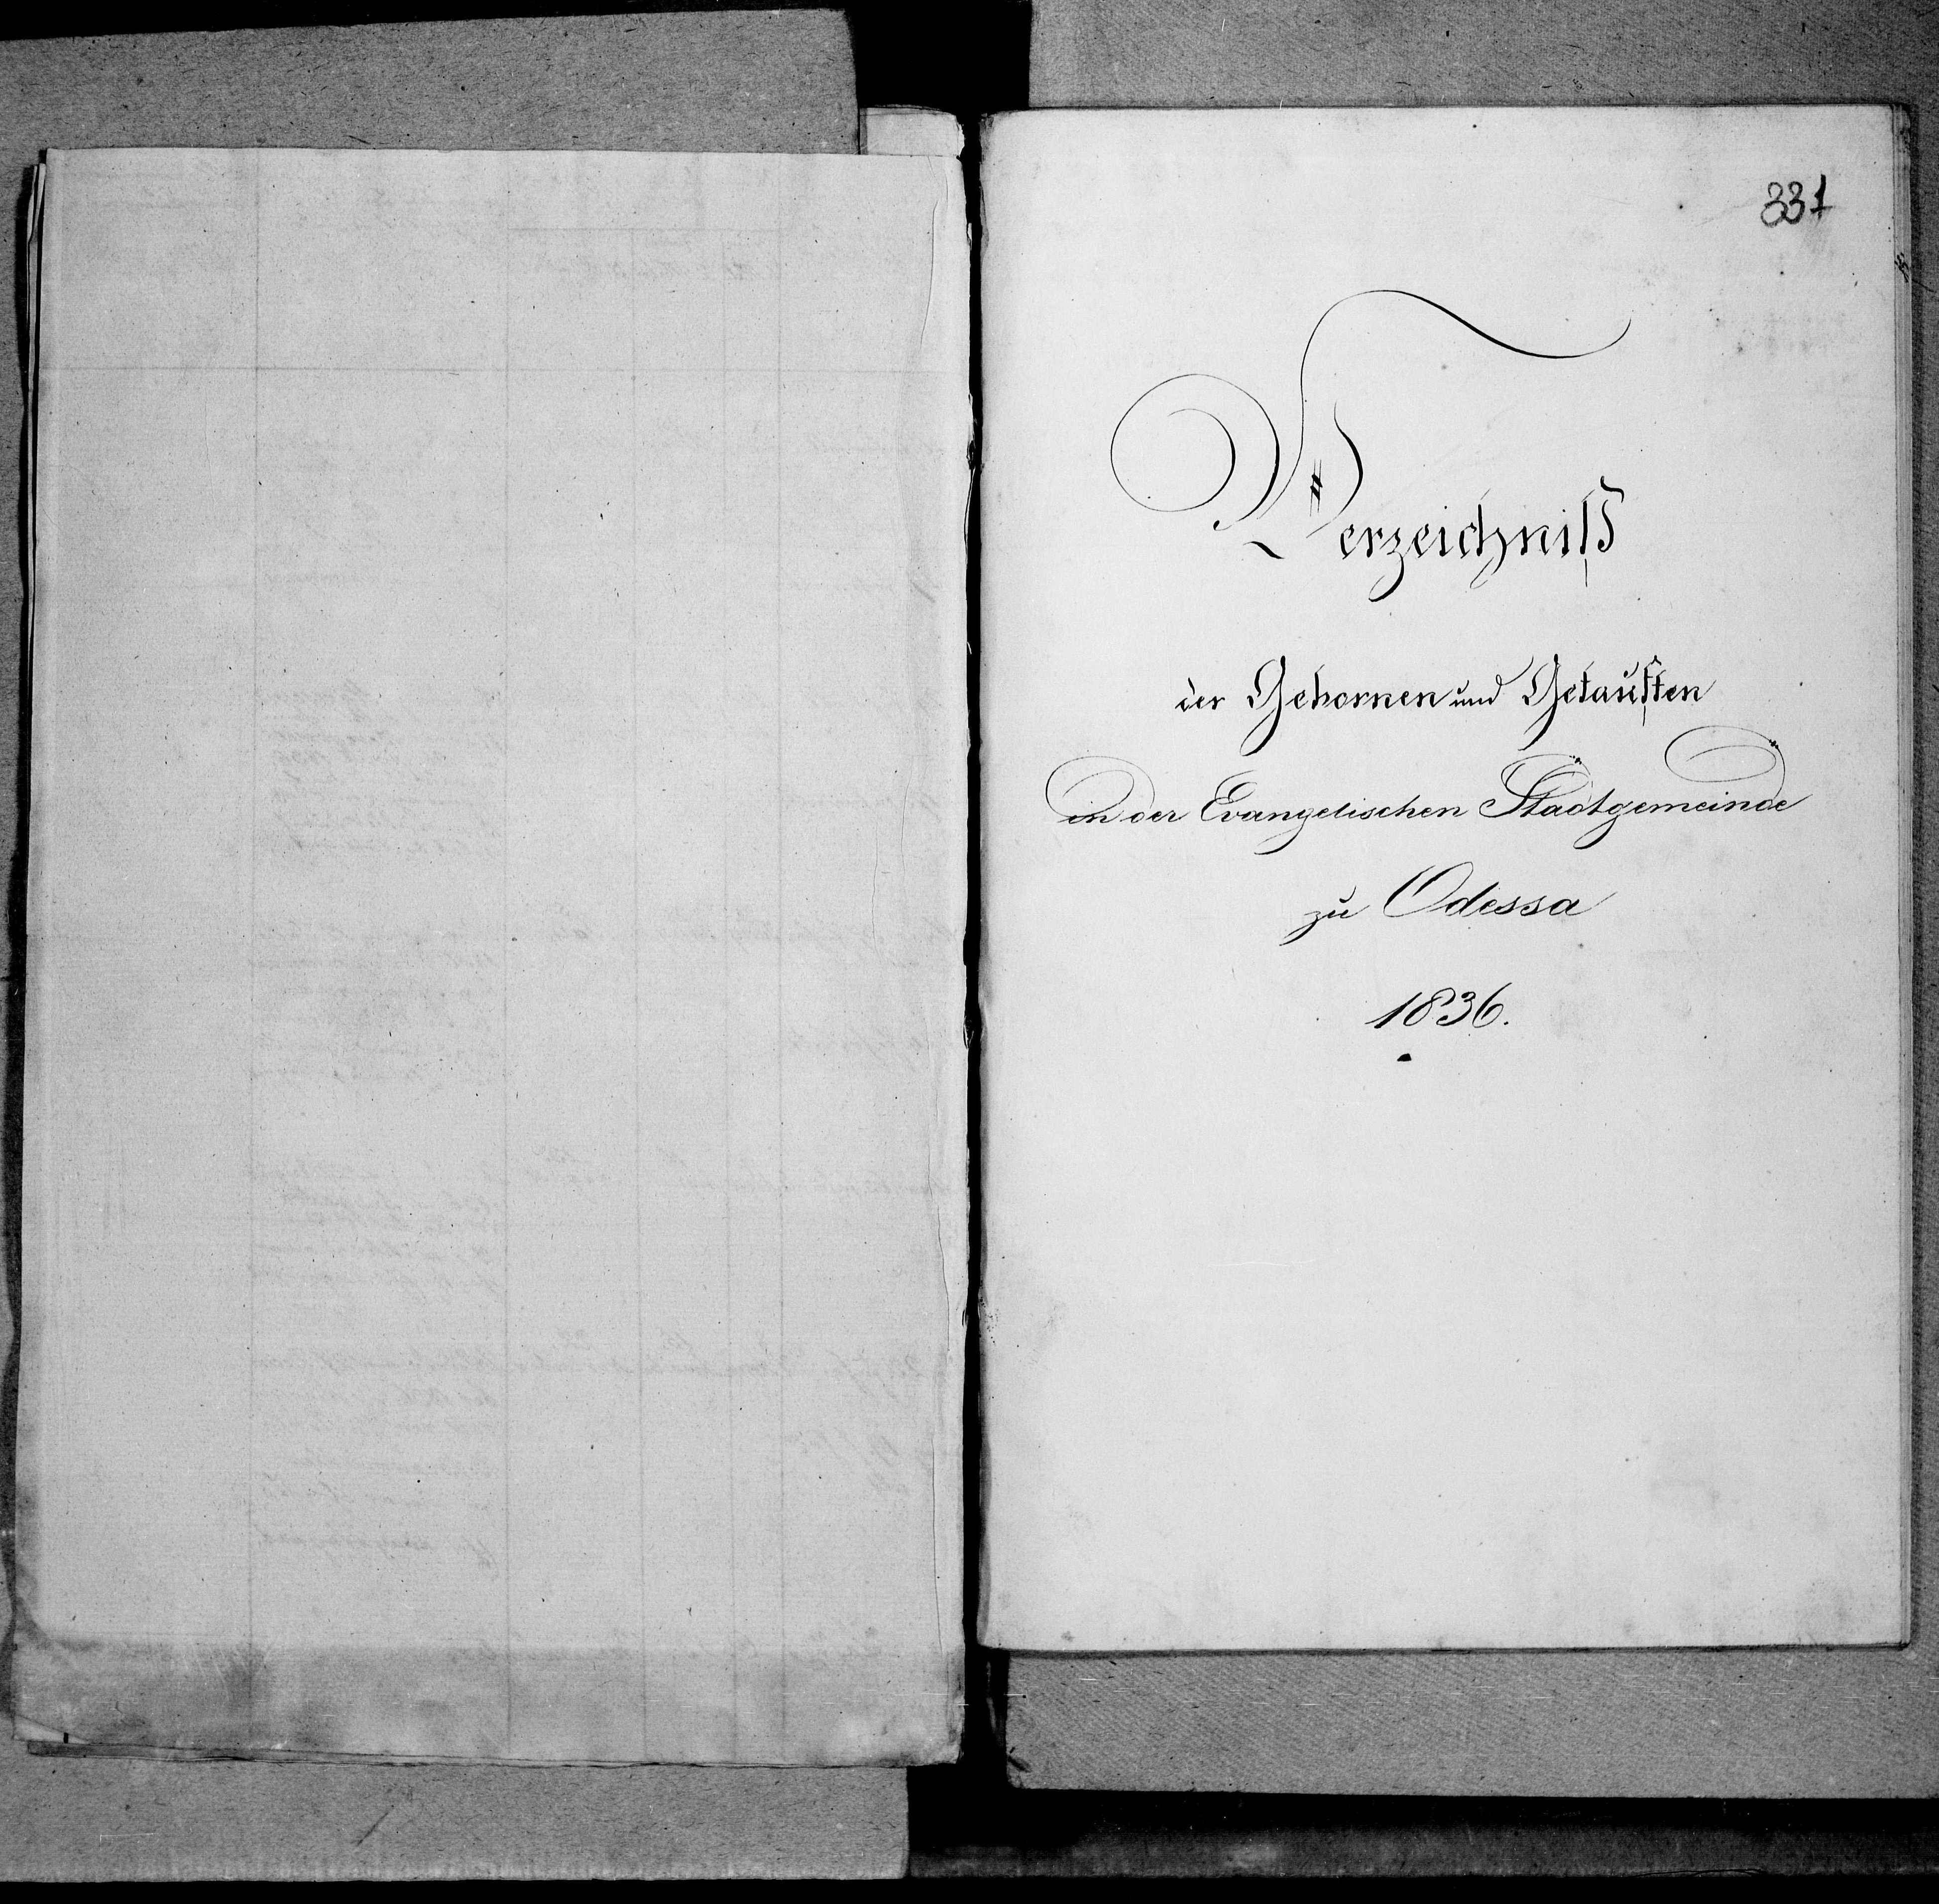 331
Verzeichniß
der Gebornen und Getauften
in der Evangelischen Stadtgemeinde
zu Odessa
1836.